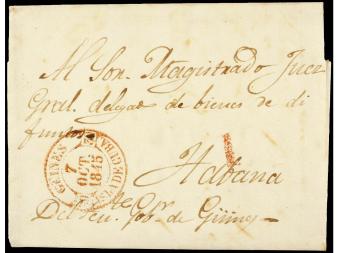 Al Sor. Magistrado Juez
Gral. delegdo de bienes de di
funtos
Habana
Del Ten. te Gor. de Güines
GÜINES
7
OCT
1845